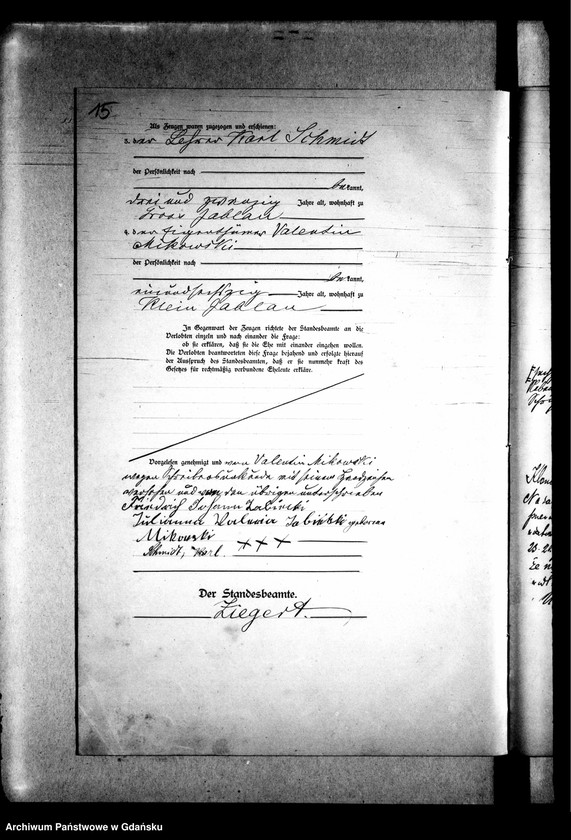 15
Als Zeugen waren zugezogen und erschienen:
3. der Lehrer Karl Schmidt
der Persönlichkeit nach
be kannt,
drei und zwanzig Jahre alt, wohnhaft zu
Gross Jablau
4. der Eigenthümer Valentin
Mikowski
der Persönlichkeit nach
be kannt,
einundsechszig Jahre alt, wohnhaft zu
Klein Jablau
In Gegenwart der Zeugen richtete der Standesbeamte an die
Verlobten einzeln und nach einander die Frage:
ob sie erklären, daß sie die Ehe mit einander eingehen wollen.
Die Verlobten beantworteten diese Frage bejahend und erfolgte hierauf
der Ausspruch des Standesbeamten, daß er sie nunmehr kraft des
Gesetzes für rechtmäßig verbundene Eheleute erkläre.
Vorgelesen genehmigt und von Valentin Mikowski
wegen Schreibensunkunde mit seinem Handzeichen
versehen und von den übrigen unterschrieben
Friedrich Johann
Julianna Valeria geborene
Mikowski
Schmidt, Karl. +++
Der Standesbeamte.
Ziegert.
Archiwum Państwowe w Gdańsku